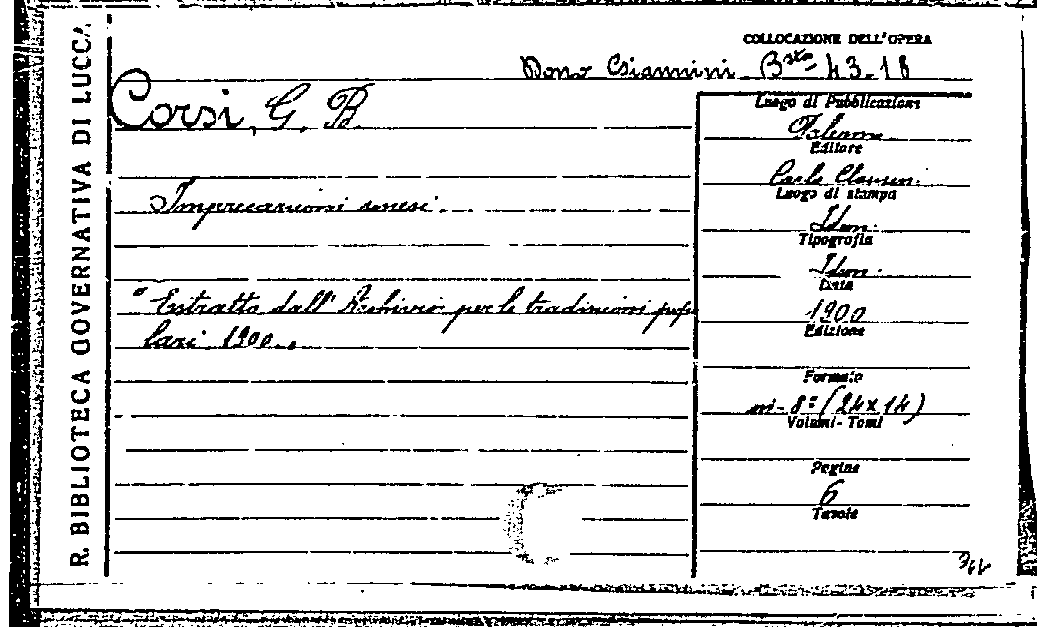 R. BIBLIOTECA GOVERNATIVA DI LUCCA
COLLOCAZIONE DELL'OPERA
Dono Giannini Bsta 43-18
Corsi, G. B.
Imprecazioni senesi.
"Estratto dall'Archivio per le tradizioni popo
lari 1900".
Luogo di Pubblicazione
Palermo
Editore
Carlo Clausen
Luogo di stampa
Idem
Tipografia
Idem
Data
1900
Edizione
Formato
in-8° (24x14)
Volumi-Tomi
Pagine
6
Tavole